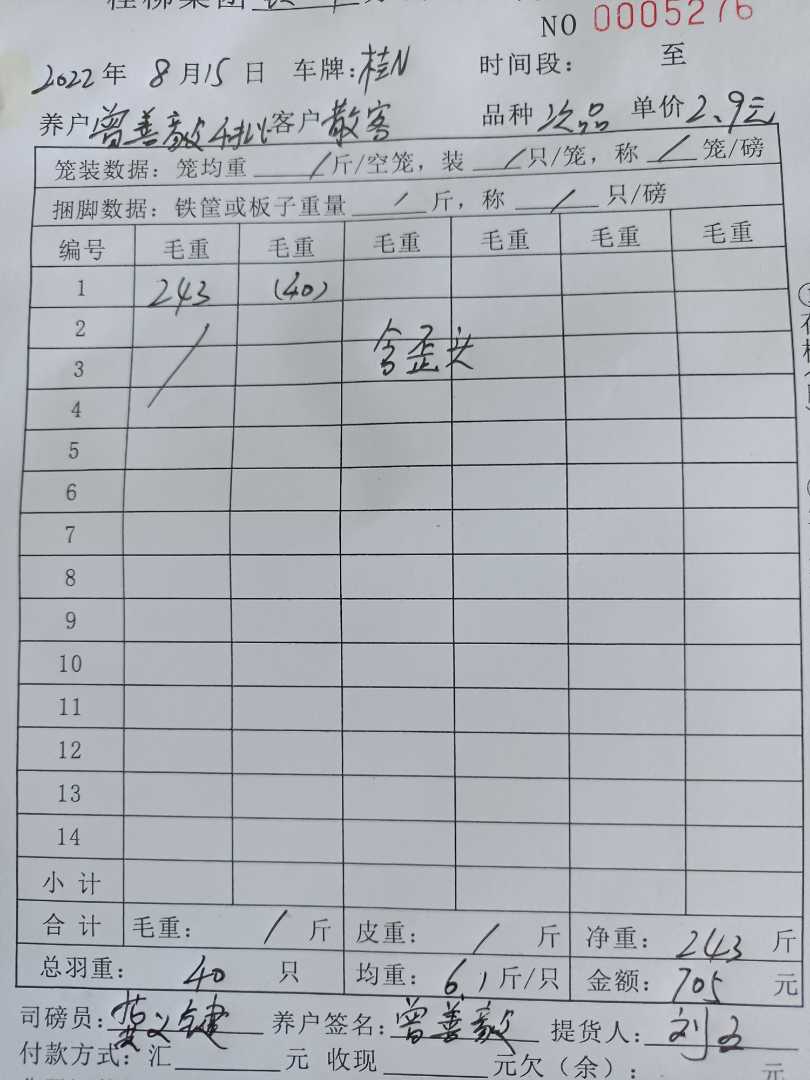 NO 0005276
2022年 8月15日 车牌:桂N 时间段: 至
养户曾善毅 客户散客 品种次品 单价2.9元
笼装数据: 笼均重 / 斤/空笼, 装 / 只/笼, 称 / 笼/磅
捆脚数据: 铁筐或板子重量 / 斤, 称 / 只/磅
编号 毛重 毛重 毛重 毛重 毛重 毛重
1 243 (40)
2
3 含歪头
4
5
6
7
8
9
10
11
12
13
14
小 计
合 计 毛重: / 斤 皮重: / 斤 净重: 243 斤
总羽重: 40 只 均重: 6.1 斤/只 金额: 705 元
司磅员: 养户签名: 曾善毅 提货人: 刘
付款方式: 汇 元 收现 元欠(余): 元